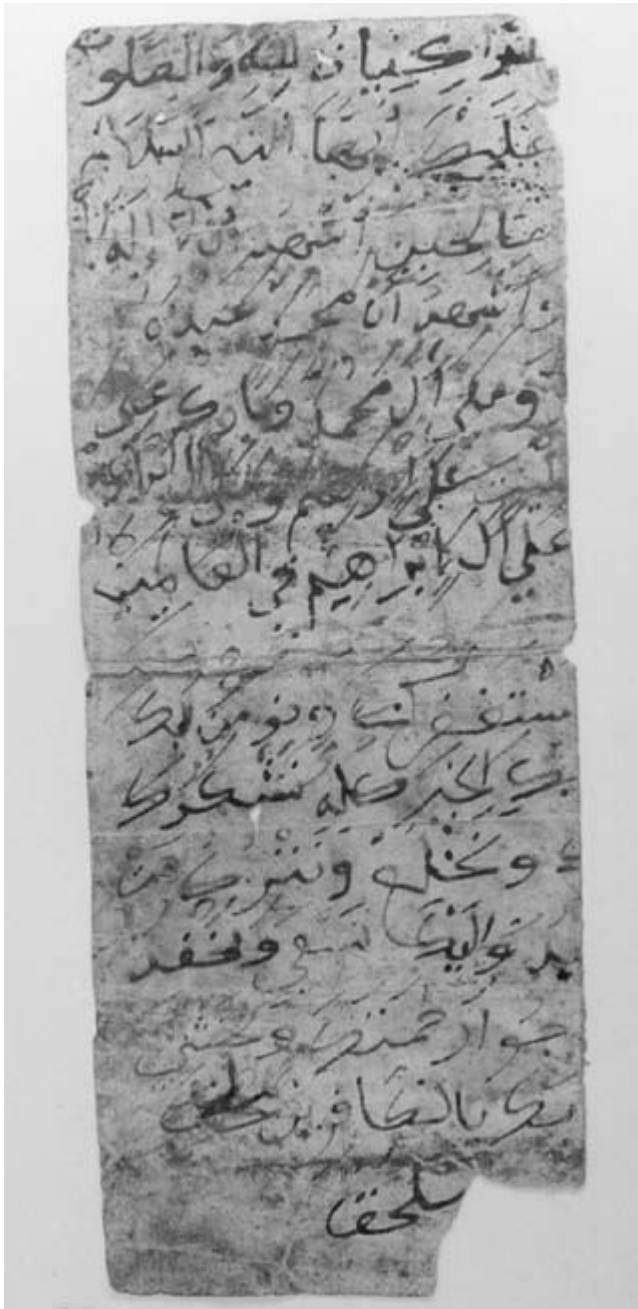 الزاكيات لله والصلو
عليك أيها النبي السلام
صالحين أشهد لا إله
وأشهد أن محمد عبده
وعلى آل محمد وبارك على
علي
على آل إبراهيم في العالمين
ستغفرك ونومن بك
ك الخير كله نشكرك
ونخلع ونترك من
د واليك نسعى ونحفد
جوا رحمتك ونخشى
بك بالكافرين
ملحق